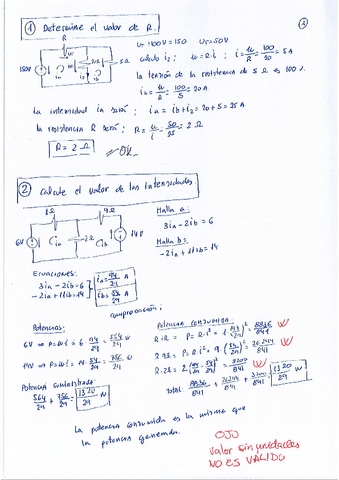 ① Determine el valor de R.
③
R
150V
20Ω
5Ω
U₁=100V=150 U₅=50V
calculo i₂; u=R·i; i=u/R=100/20=5A
la tensión de la resistencia de 5Ω es 100v.
i₂=u/R=100/5=20A
La intensidad ia será; ia=ib+i₂=20+5=25A
la resistencia R será; R=u/i=50/25=2Ω
R=2Ω
OK
② Calcule el valor de las intensidades
1Ω
9Ω
6V
ia
2Ω
ib
14V
Malla a:
3ia-2ib=6
Malla b:
-2ia+11ib=14
Ecuaciones:
3ia-2ib=6
-2ia+11ib=14
ia=94/29 A
ib=54/29 A
comprobación:
Potencias:
6V ⇒ P=v·i=6·94/29=564/29 W
14V ⇒ P=v·i=14·54/29=756/29 W
Potencia suministrada:
564/29+756/29=1320/29 W
Potencia consumida
R1Ω=P=R·i²=1(94/29)²=8836/841 W
R9Ω=P=R·i²=9·(54/29)²=26244/841 W
R·2Ω=2(40/29)²=3200/841 W
Total 8836/841+26244/841+3200/841=1320/29 W
La potencia consumida es la misma que
la potencia generada.
OJO
Valor sin unidades
NO ES VÁLIDO